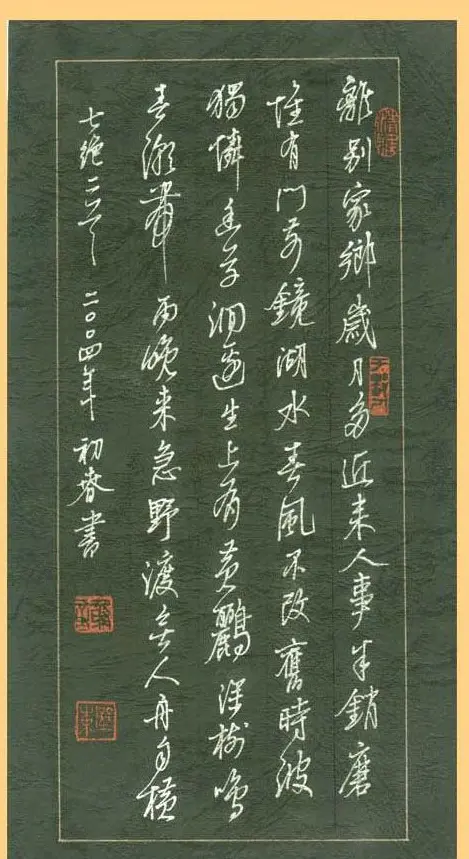 離别家鄉歲月多近来人事半銷磨
惟有門前鏡湖水春風不改舊時波
獨憐幽草澗邊生上有黄鸝深樹鳴
春潮帶雨晚来急野渡無人舟自横
七絶二首 二〇〇四年 初春書